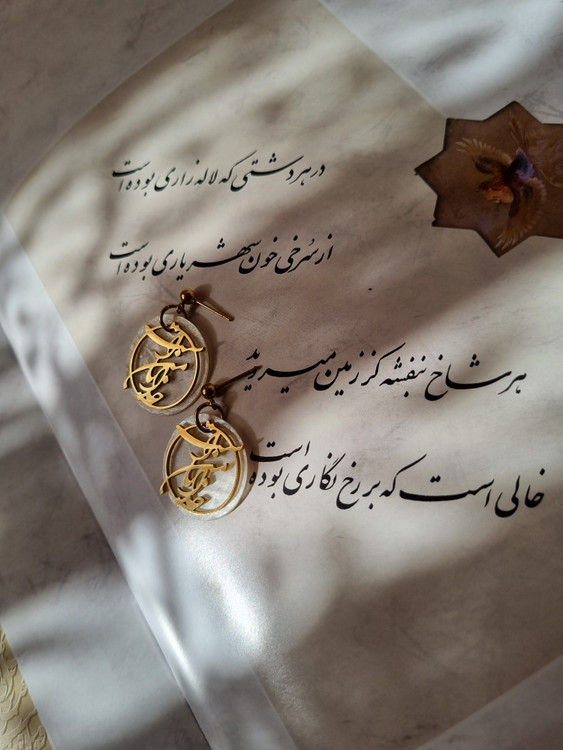 در هر دشتی که لاله‌زاری بوده است
از سرخی خون شهریاری بوده است
هر شاخ بنفشه کز زمین میروید
خالی است که بر رخ نگاری بوده است